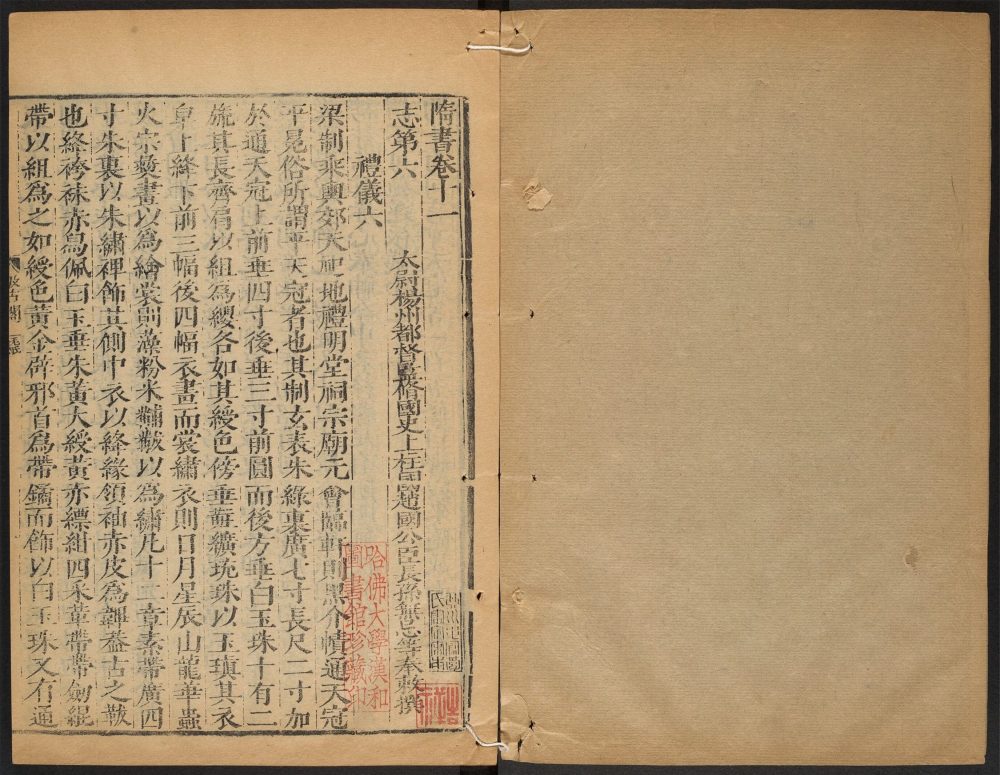 隋書卷十一
志第六
太尉楊州都督監脩國史上柱國趙國公臣長孫無忌等奉敕撰
禮儀六
梁制乘輿郊天祀地禮明堂祠宗廟元會臨軒則黑介幘通天冠
平冕俗所謂平天冠者也其制玄表朱綠裏廣七寸長尺二寸加
於通天冠上前垂四寸後垂三寸前圓而後方垂白玉珠十有二
旒其長齊肩以組爲纓各如其綬色傍垂黈纊珫珠以玉瑱其衣
皁上絳下前三幅後四幅衣畫而裳繡衣則日月星辰山龍華蟲
火宗彝畫以爲繪裳則藻粉米黼黻以爲繡凡十二章素帶廣四
寸朱裏以朱繡裨飾其側中衣以絳緣領袖赤皮爲韠葢古之韍
也絳袴袜赤舄佩白玉垂朱黃大綬黃赤縹紺四采革帶帶劒緄
帶以組爲之如綬色黃金辟邪首爲帶鐍而飾以白玉珠又有通
哈佛大學漢和
圖書館珍藏印
汲古閣